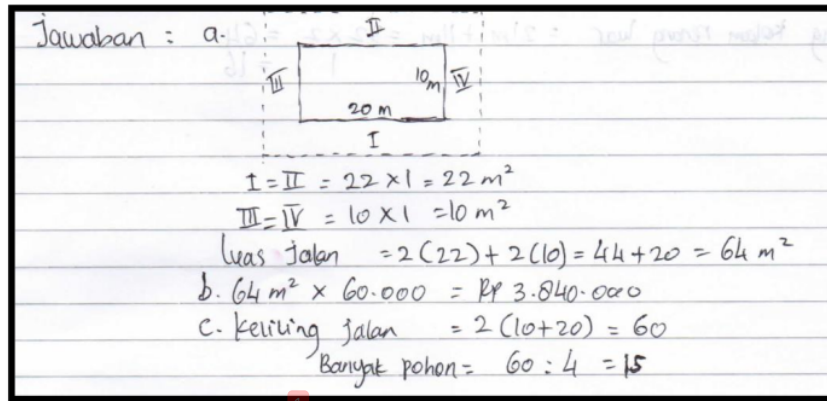 Jawaban : a.
II
III
10 m
IV
20 m
I
I = II = 22 x 1 = 22 m²
III = IV = 10 x 1 = 10 m²
luas jalan = 2(22) + 2(10) = 44 + 20 = 64 m²
b. 64 m² x 60.000 = Rp 3.840.000
c. keliling jalan = 2(10+20) = 60
Banyak pohon = 60 : 4 = 15